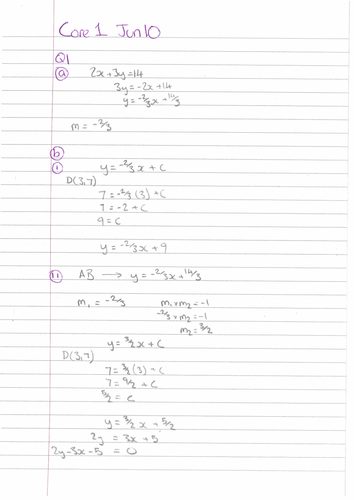 Core 1 Jun 10
Q1
(a) 2x + 3y = 14
3y = -2x + 14
y = -2/3x + 14/3
m = -2/3
(b)
(i) y = -2/3x + C
D(3,7)
7 = -2/3(3) + C
7 = -2 + C
9 = C
y = -2/3x + 9
(ii) AB → y = -2/3x + 14/3
m₁ = -2/3 m₁ × m₂ = -1
-2/3 × m₂ = -1
m₂ = 3/2
y = 3/2x + C
D(3,7)
7 = 3/2(3) + C
7 = 9/2 + C
5/2 = C
y = 3/2x + 5/2
2y = 3x + 5
2y - 3x - 5 = 0